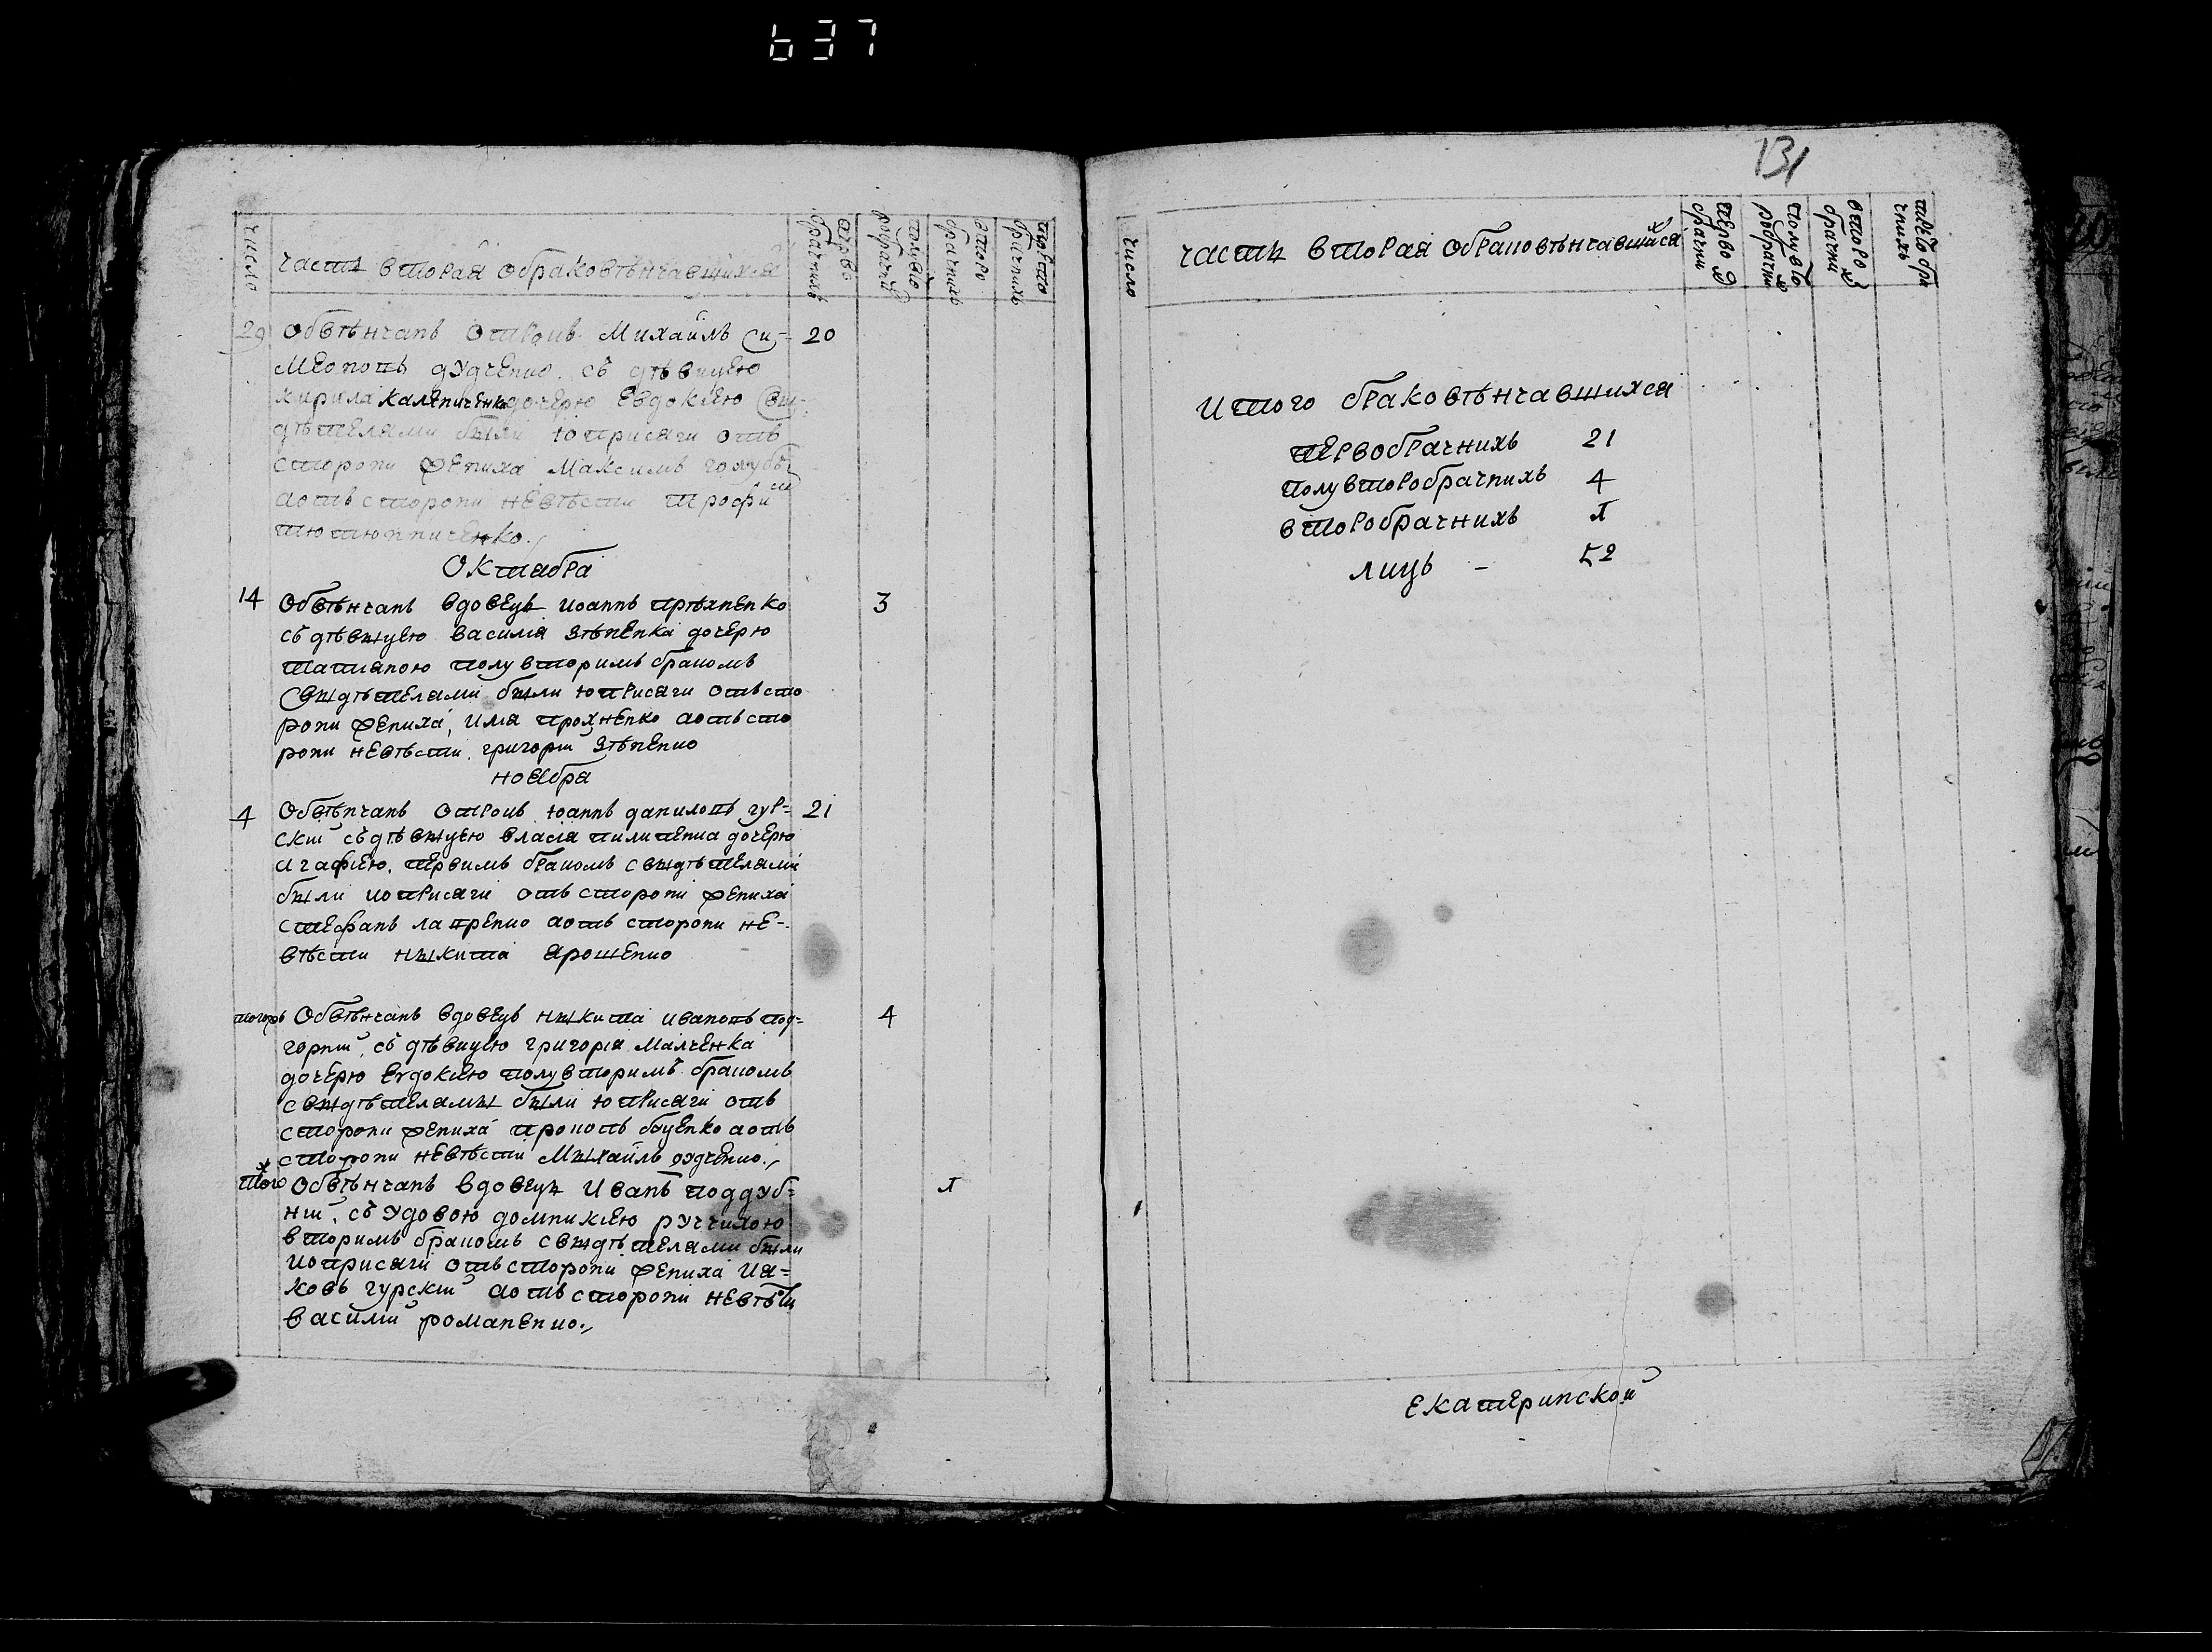 637
число
часть вторая обраковѣнчавшихся
перво брачнихъ
полувто робрачни
второ брачнихъ
29 Обвѣнчанъ отрокъ Михаилъ Си- 20
меоновъ дудченко съ дѣвицею
Кирила Калениченка дочерю Евдокіею Сви-
дѣтелями были юприсяги отъ
сторони жениха Максимъ голубъ
аотъ сторони невѣсти трофи
тютюнниченко.
Октября
14 Обвѣнчанъ вдовецъ иоаннъ прѣхненко 3
съ дѣвицею василія зѣненка дочерю
татіаною полувторимъ бракомъ
Свидѣтелями были юприсяги отъ сто
рони жениха, илія прохненко аотъ сто
рони невѣсти, григорій зѣненко
ноября
4 Обвѣнчанъ отрокъ юаннъ даниловъ гур- 21
скій съ дѣвицею власія пилипенка дочерю
агафіею, первимъ бракомъ свидѣтелями
были юприсяги отъ сторони жениха
стефанъ лапренко аотъ сторони не-
вѣсти никита ярошенко
тогожъ Обвѣнчанъ вдовецъ никита ивановъ под- 4
горній, съ дѣвицею григорія малченка
дочерю Евдокіею полувторимъ бракомъ
свидѣтелями были юприсяги отъ
сторони жениха прокопъ боценко аотъ
сторони невѣсти михаилъ дудченко.
тогож Обвѣнчанъ вдовецъ иванъ поддуб- 1
ній, съ удовою домникіею ручкихою
вторимъ бракомъ свидѣтелями были
юприсяги отъ сторони жениха ия-
ковъ гурскій аотъ сторони невѣсти
василій романенко.
131
число
часть вторая обраковѣнчавшихся
перво брачни х
полувто робрачни х
второ брачни х
Итого браковѣнчавшихся
первобрачнихъ 21
полувторобрачнихъ 4
второбрачнихъ 1
лицъ - 52
Екатеринской